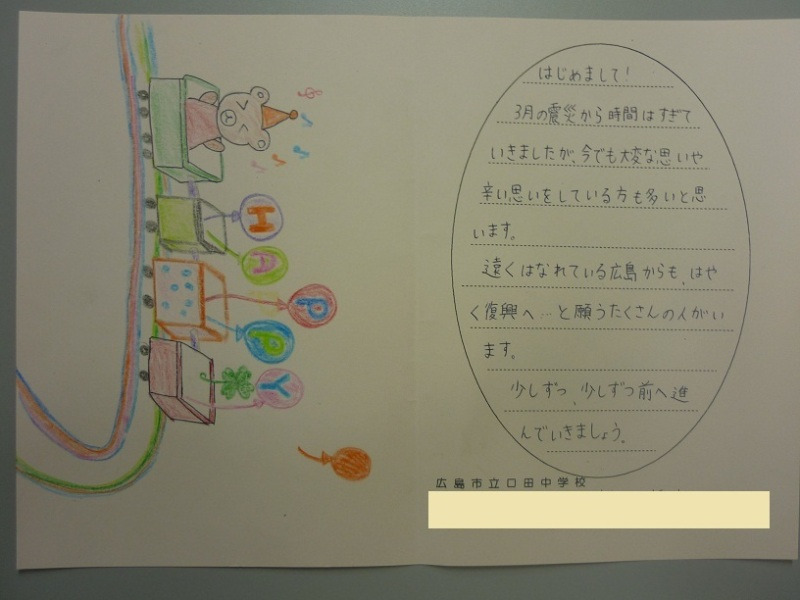 はじめまして!
3月の震災から時間はすぎて
いきましたが、今でも大変な思いや
辛い思いをしている方も多いと思
います。
遠くはなれている広島からも、はや
く復興へ…と願うたくさんの人がい
ます。
少しずつ、少しずつ前へ進
んでいきましょう。
広島市立口田中学校
H
A
P
P
Y